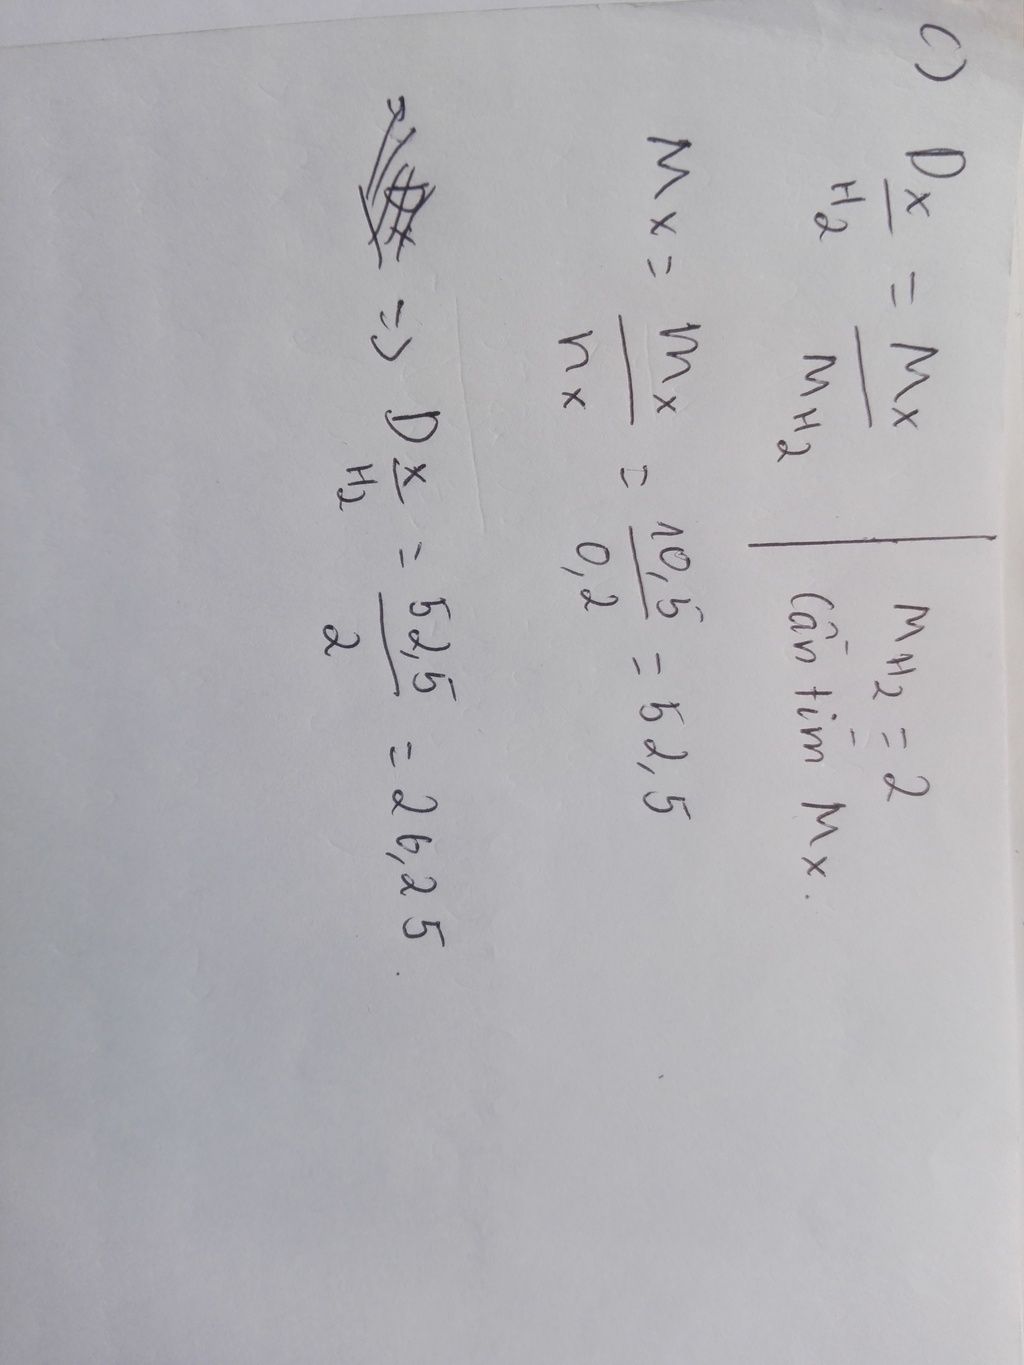 c) D x/H2 = Mx/MH2 | MH2 = 2
Cần tìm Mx.
Mx = mx/nx = 10,5/0,2 = 52,5
=> D x/H2 = 52,5/2 = 26,25.